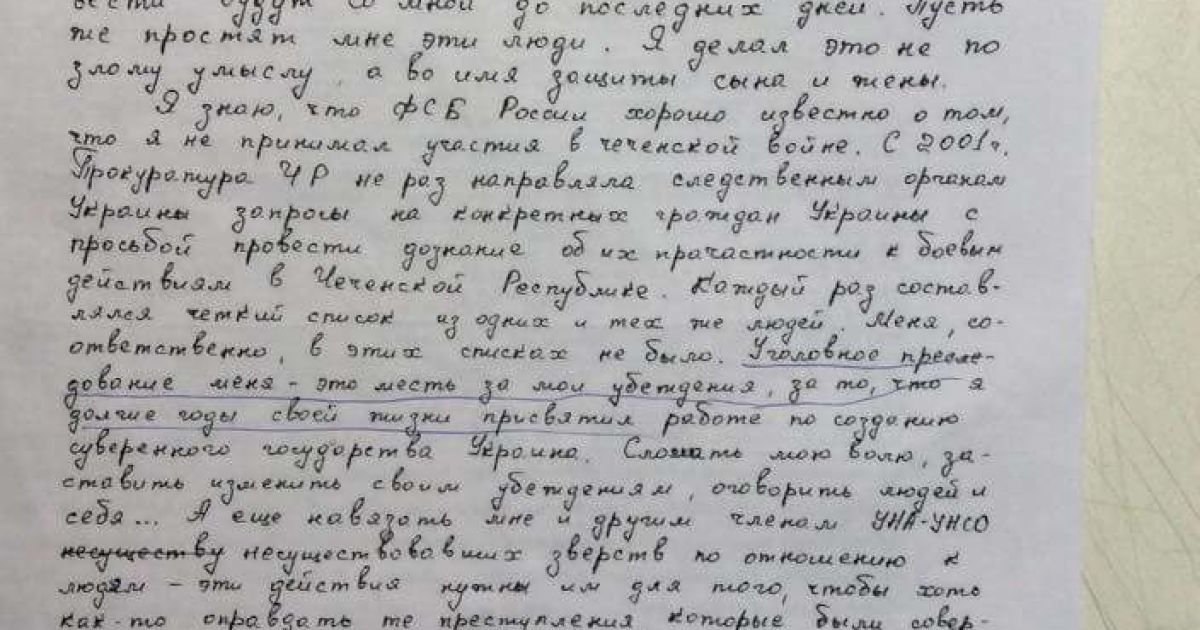 вести будут со мной до последних дней. Пусть
же простят мне эти люди. Я делал это не по
злому умыслу, а во имя защиты сына и жены.
Я знаю, что ФСБ России хорошо известно о том,
что я не принимал участия в чеченской войне. С 2001г.
Прокуратура ЧР не раз направляла следственным органам
Украины запросы на конкретных граждан Украины с
просьбой провести дознание об их прачастности к боевым
действиям в Чеченской Республике. Каждый раз состав-
лялся четкий список из одних и тех же людей. Меня, со-
ответственно, в этих списках не было. Уголовное пресле-
дование меня - это месть за мои убеждения, за то, что я
долгие годы своей жизни присвятил работе по созданию
суверенного государства Украина. Сломать мою волю, за-
ставить изменить своим убеждениям, оговорить людей и
себя... А еще навязать мне и другим членам УНА-УНСО
несуществу несуществовавших зверств по отношению к
людям - эти действия нужны им для того, чтобы хоть
как-то оправдать те преступления которые были совер-